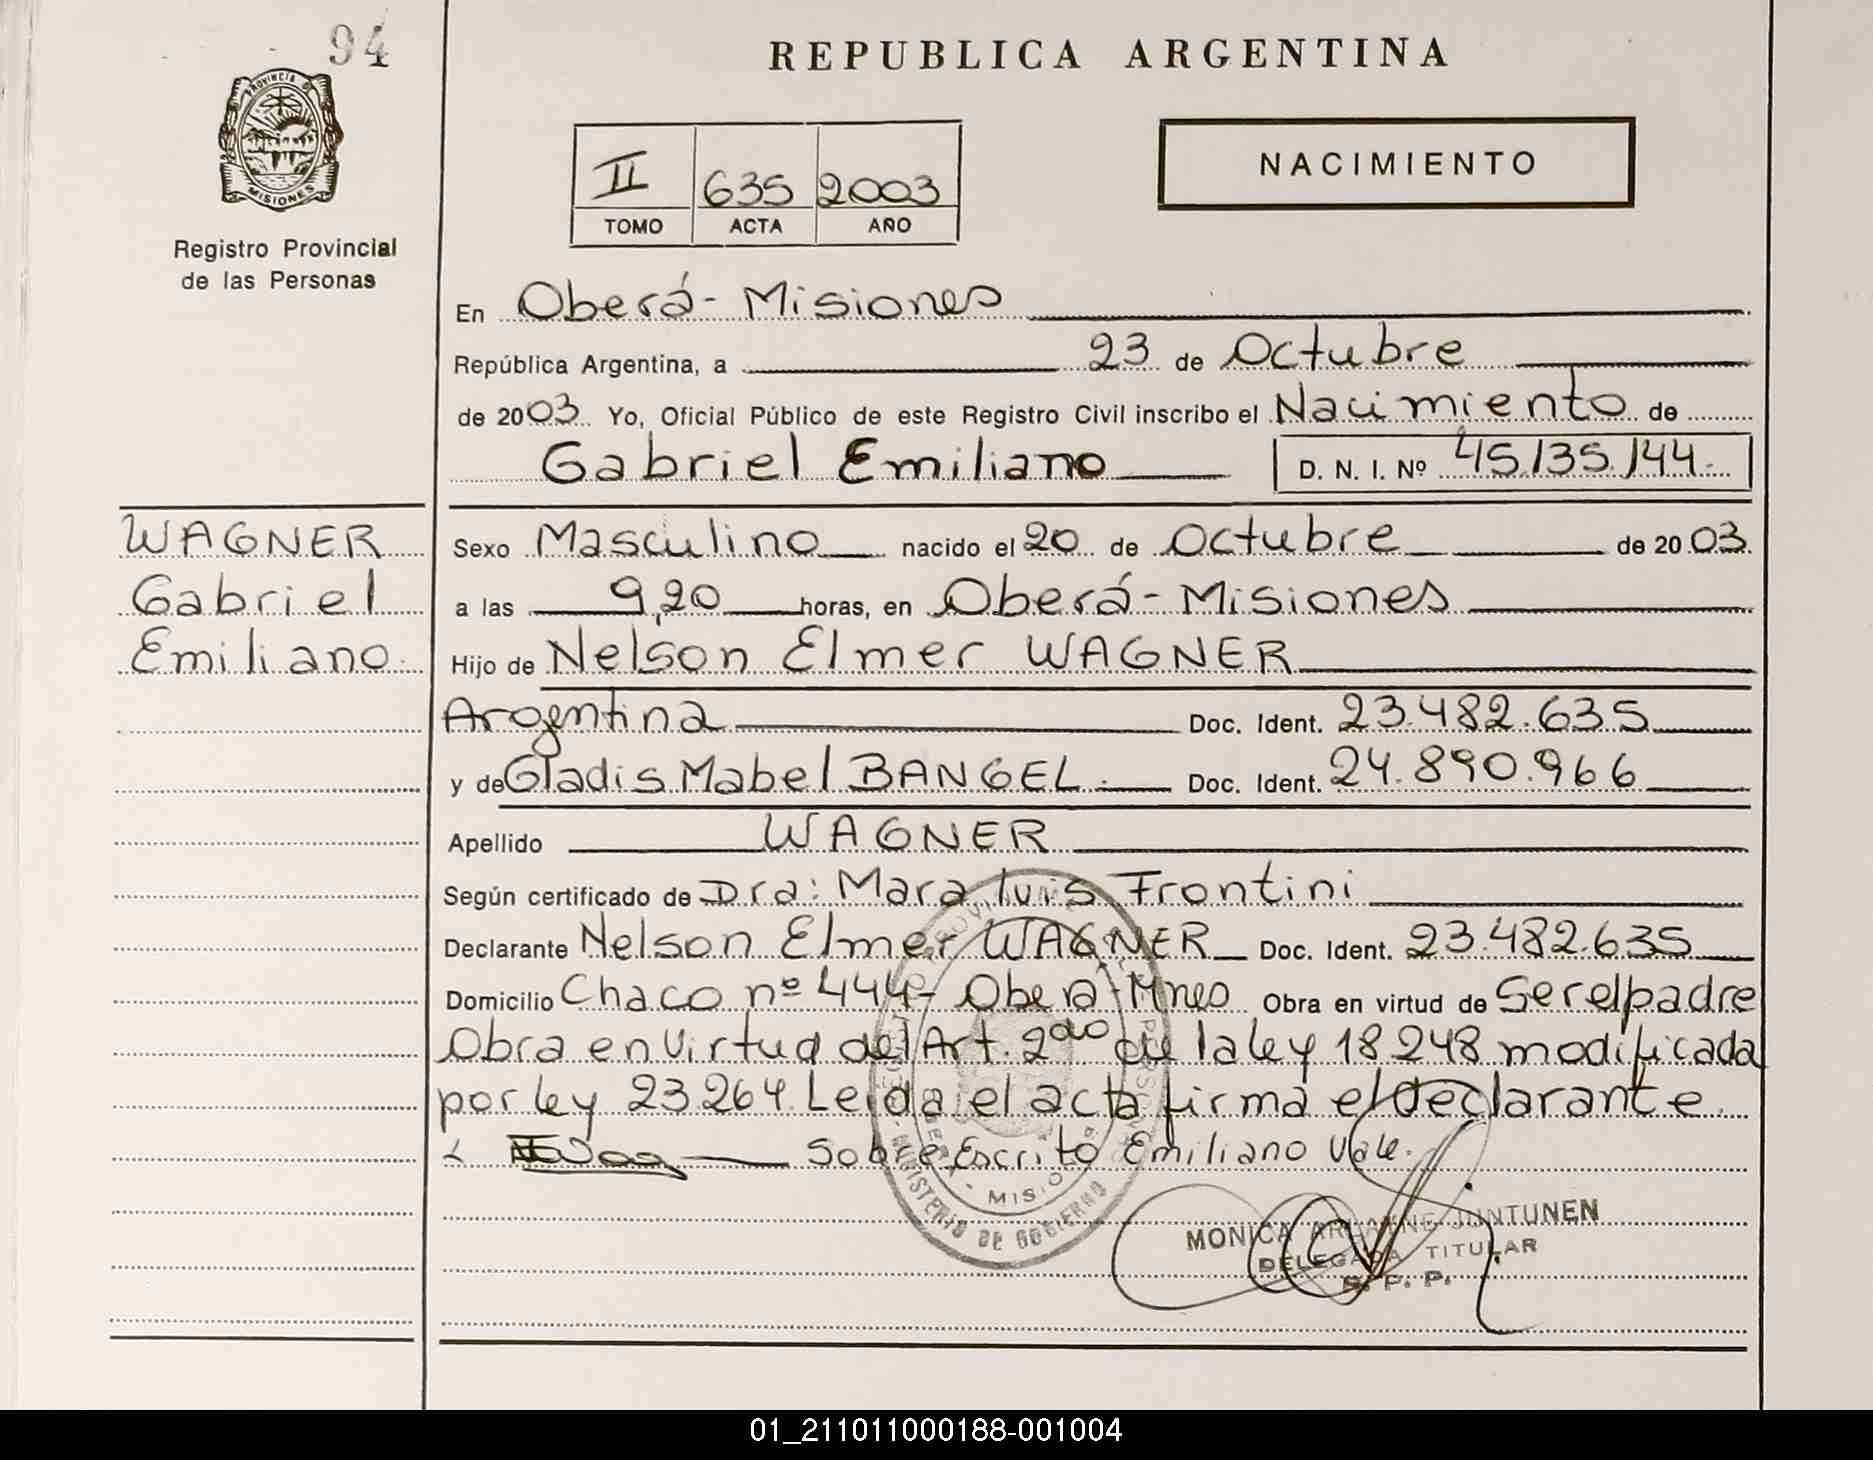 94
REPUBLICA ARGENTINA
PROVINCIA DE
MISIONES
Registro Provincial
de las Personas
II 635 2003
TOMO ACTA AÑO
NACIMIENTO
En Oberá - Misiones
República Argentina, a 23 de Octubre
de 2003 Yo, Oficial Público de este Registro Civil inscribo el Nacimiento de
Gabriel Emiliano D. N. I. Nº 45.135.144.
WAGNER
Gabriel
Emiliano.
Sexo Masculino nacido el 20 de Octubre de 2003.
a las 9,20 horas, en Oberá - Misiones
Hijo de Nelson Elmer WAGNER
Argentina Doc. Ident. 23.482.635
y de Gladis Mabel BANGEL. Doc. Ident. 24.890.966
Apellido WAGNER
Según certificado de Dra: Mara luis Frontini
Declarante Nelson Elmer WAGNER Doc. Ident. 23.482.635
Domicilio Chaco nº 444 - Oberá - Mnes Obra en virtud de Ser el padre
Obra en Virtud del Art. 2do de la ley 18248 modificada
por ley 23.264. Leida el acta firma el Declarante
Sobre Escrito Emiliano Vale.
MISIO
MINISTERIO DE GOBIERNO
MONICA JUNTUNEN
DELEGADA TITULAR
R. P. P.
01_211011000188-001004